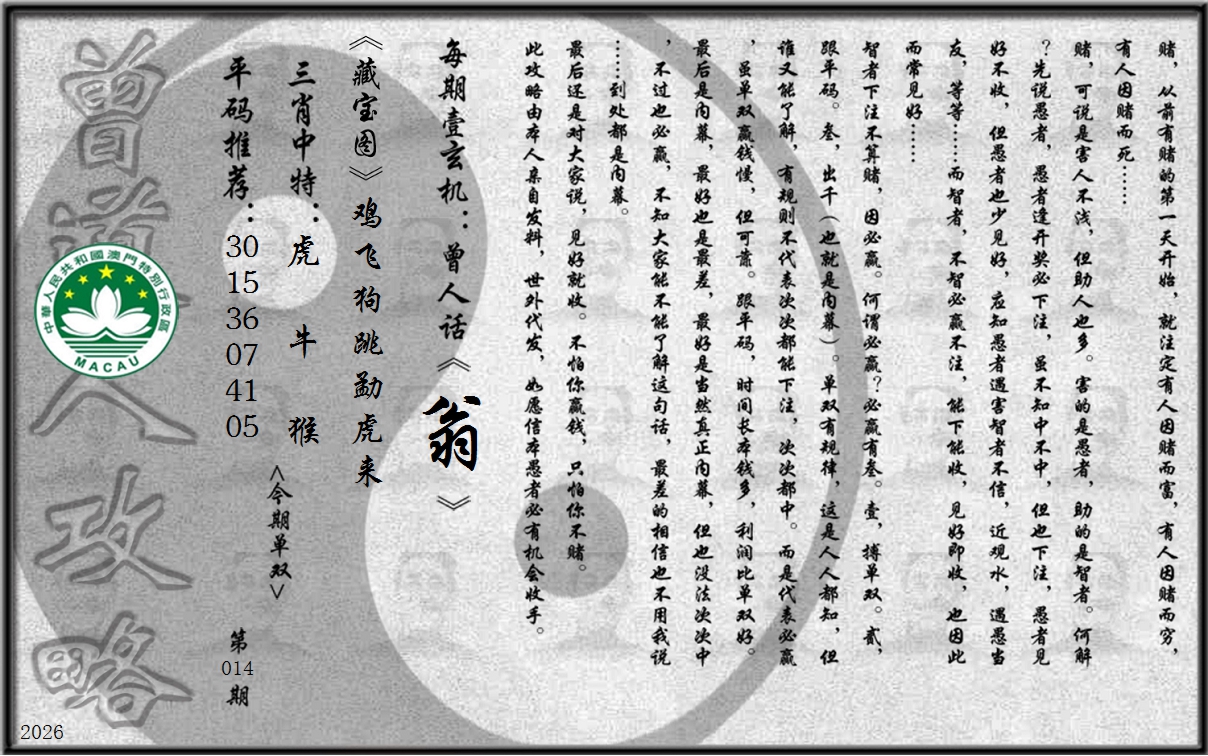 赌，从前有赌的第一天开始，就注定有人因赌而富，有人因赌而穷，
有人因赌而死……
赌，可说是害人不浅，但助人也多。害的是愚者，助的是智者。何解
？先说愚者，愚者逢开奖必下注，虽不知中不中，但也下注，愚者见
好不收，但愚者也少见好，应知愚者遇害智者不信，近观水，遇愚当
友，等等……而智者，不智必赢不注，能下能收，见好即收，也因此
而常见好……
智者下注不算赌，因必赢。何谓必赢？必赢有叁。壹，搏单双。贰，
跟平码。叁，出千（也就是内幕）。单双有规律，这是人人都知，但
谁又能了解，有规则不代表次次都能下注，次次都中。而是代表必赢
，虽单双赢钱慢，但可靠。跟平码，时间长本钱多，利润比单双好。
最后是内幕，最好也是最差，最好是当然真正内幕，但也没法次次中
，不过也必赢，不知大家能不能了解这句话，最差的相信也不用我说
……到处都是内幕。
最后还是对大家说，见好就收。不怕你赢钱，只怕你不赌。
此攻略由本人亲自发料，世外代发，如愿信本愚者必有机会收手。
每期壹玄机：曾人话《翁》
《藏宝图》鸡飞狗跳勐虎来
三肖中特：虎 牛 猴
<今期单双>
平码推荐：30 15 36 07 41 05
第014期
曾道人攻略
中華人民共和國澳門特別行政區
MACAU
2026